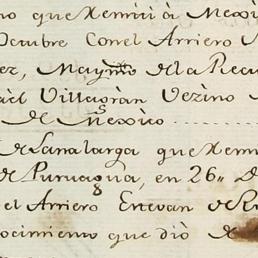 no que Remiti à Mexi
Octubre Con el Arriero
ez, Maymo de la Recu
aèl Villagràn Vezino
de Mexico
de Lana larga que Remi
de Puruagua, en 26,, D
el Arriero Estevan de R
ocimiento que diò de